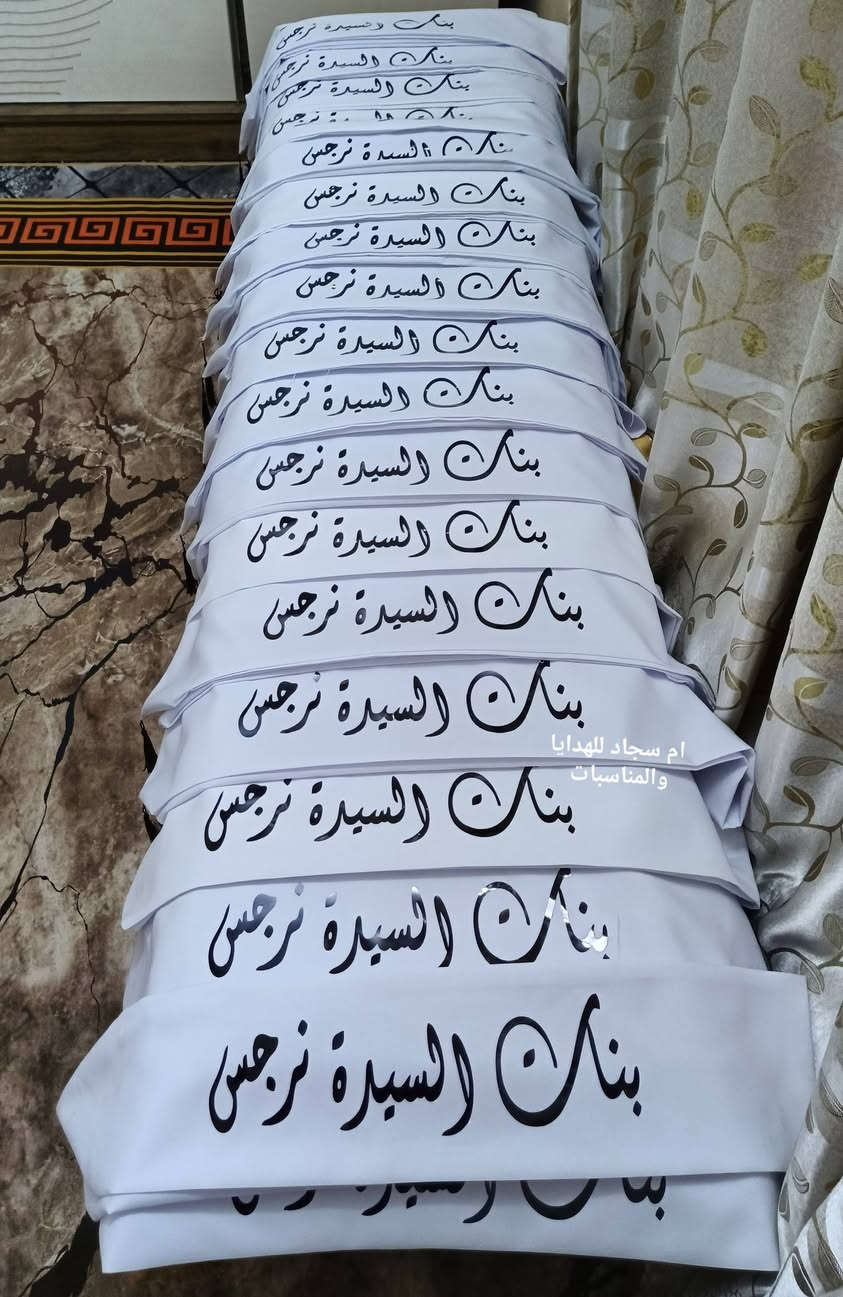 بنات السيدة نرجس
بنات السيدة نرجس
بنات السيدة نرجس
بنات السيدة نرجس
بنات السيدة نرجس
بنات السيدة نرجس
بنات السيدة نرجس
بنات السيدة نرجس
بنات السيدة نرجس
بنات السيدة نرجس
بنات السيدة نرجس
بنات السيدة نرجس
بنات السيدة نرجس
ام سجاد للهدايا
والمناسبات
بنات السيدة نرجس
بنات السيدة نرجس
بنات السيدة نرجس